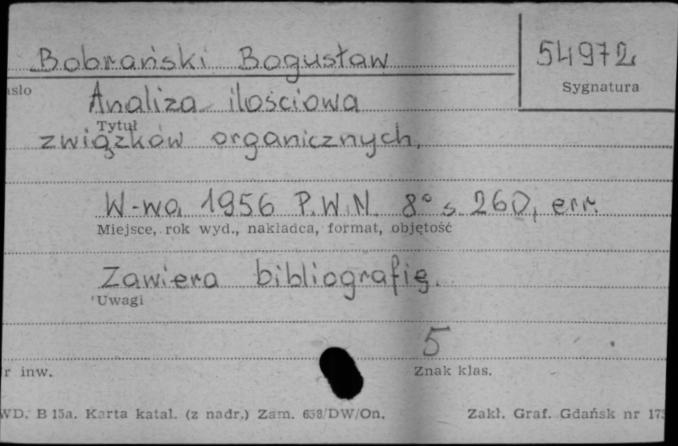 Bobrański Bogusław 54972
Sygnatura
asło
Analiza ilościowa
Tytuł
związków organicznych.
W-wa 1956 P.W.N. 8° s. 260, err.
Miejsce, rok wyd., nakładca, format, objętość
Zawiera bibliografię.
Uwagi
5
r inw. Znak klas.
WD. B 15a. Karta katal. (z nadr.) Zam. 658/DW/On. Zakł. Graf. Gdańsk nr 173